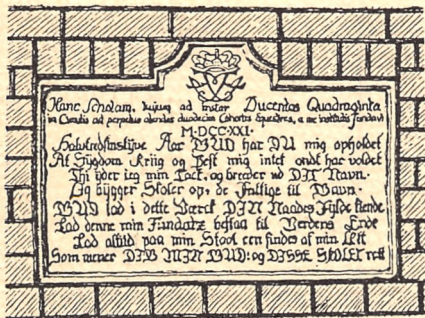 Hanc Scholam, hujusq ad instar Ducentas Quadraginta
in Circulis ad perpetuo alendas duodecim Cohortes Equestres, a me institutis fundavi
M·DCC·XXI·
Halvtredsinstjve Aar GUD har DU mig opholdet
At Sygdom Kriig og Pest mig intet ondt har voldet
Thi yder jeg min Tack, og breder ud DIT Navn.
Og bÿgger Skoler op, de Fattige til Gavn.
GUD lad i dette Værck DIN Naades Fylde kiende
Lad denne min Fundatz bestaa til Verdens Ende
Lad altiid paa min Stool een findes af min Ætt
Som mener DIG MIN GUD: og DISSE SKOLER rett